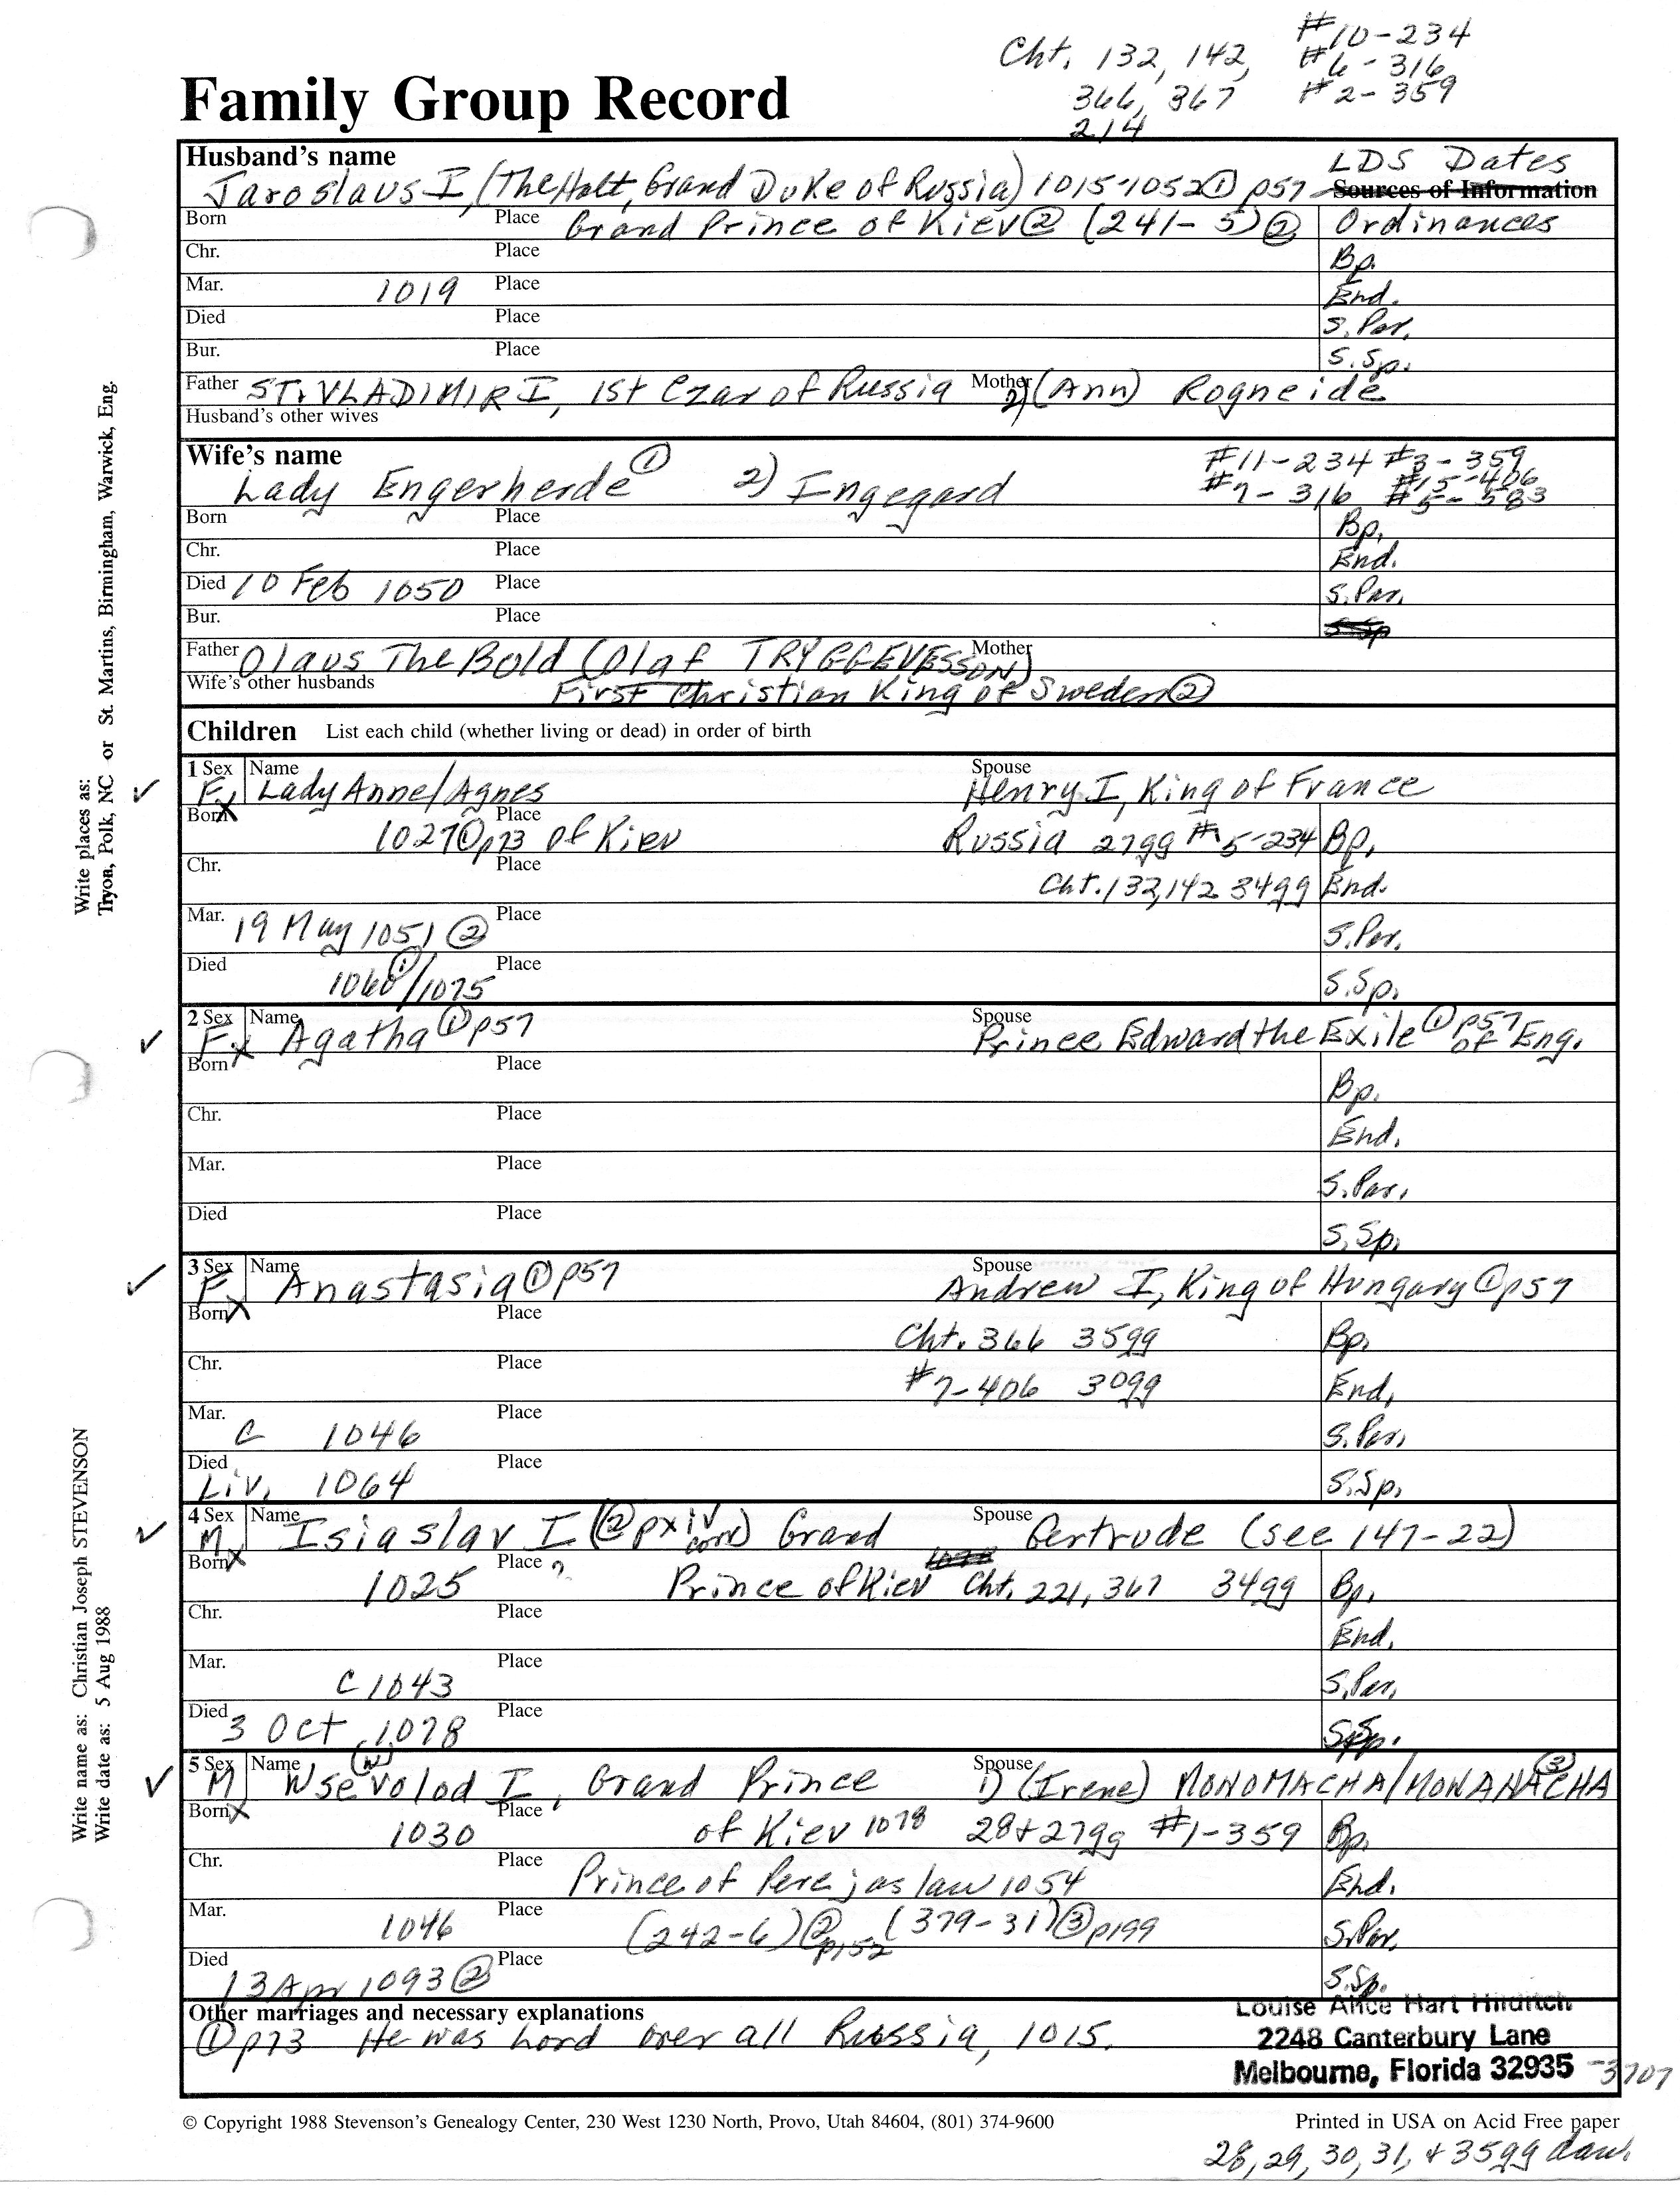 Cht. 132, 142, #10-234
366, 367 #6-316
214 #2-359
Family Group Record
Husband's name LDS Dates
Jaroslaus I, (The Halt, Grand Duke of Russia) 1015-1052 ① p57 Sources of Information
Born Place Grand Prince of Kiev ② (241-5) ② Ordinances
Chr. Place Bp.
Mar. 1019 Place End.
Died Place S. Par.
Bur. Place S. Sp.
Father ST. VLADIMIR I, 1st Czar of Russia Mother 2) (Ann) Rogneide
Husband's other wives
Wife's name #11-234 #3-359
Lady Engerherde ① 2) Ingegard #7-316 #15-406 #5-583
Born Place Bp.
Chr. Place End.
Died 10 Feb 1050 Place S. Par.
Bur. Place S Sp
Father Olaus The Bold (Olaf TRYGGEVESSON) Mother
Wife's other husbands First Christian King of Sweden ②
Children List each child (whether living or dead) in order of birth
1 Sex F Name Lady Anne/Agnes Spouse Henry I, King of France
Born X 1027 ① p73 Place of Kiev Russia 27gg #5-234 Bp.
Chr. Place Cht. 132, 142 34gg End.
Mar. 19 May 1051 ② Place S. Par.
Died 1060 ①/1075 Place S. Sp.
2 Sex F Name Agatha ① p57 Spouse Prince Edward the Exile ① p57 of Eng.
Born X Place Bp.
Chr. Place End.
Mar. Place S. Par.
Died Place S. Sp.
3 Sex F Name Anastasia ① p57 Spouse Andrew I, King of Hungary ① p57
Born X Place Cht. 366 35gg Bp.
Chr. Place #7-406 30gg End.
Mar. C 1046 Place S. Par.
Died Liv. 1064 Place S. Sp.
4 Sex M Name Isiaslav I (② pxiv corr) Grand Spouse Gertrude (see 147-22)
Born X 1025 Place ? Prince of Kiev Cht. 221, 367 34gg Bp.
Chr. Place End.
Mar. C 1043 Place S. Par.
Died 3 Oct 1078 Place S. Sp.
5 Sex M Name Wsevolod (W) I, Grand Prince Spouse 1) (Irene) MONOMACHA/MONANACHA ③
Born X 1030 Place of Kiev 1078 28+27gg #1-359 Bp.
Chr. Place Prince of Perejaslaw 1054 End.
Mar. 1046 Place (242-6) ② p152 (379-31) ③ p199 S. Par.
Died 13 Apr 1093 ② Place S. Sp.
Other marriages and necessary explanations Louise Alice Hart Hilditch
① p73 He was Lord over all Russia, 1015. 2248 Canterbury Lane
Melbourne, Florida 32935 -3707
© Copyright 1988 Stevenson's Genealogy Center, 230 West 1230 North, Provo, Utah 84604, (801) 374-9600 Printed in USA on Acid Free paper
28, 29, 30, 31, + 35gg dau.
Write places as:
Tryon, Polk, NC or St. Martins, Birmingham, Warwick, Eng.
Write name as: Christian Joseph STEVENSON
Write date as: 5 Aug 1988